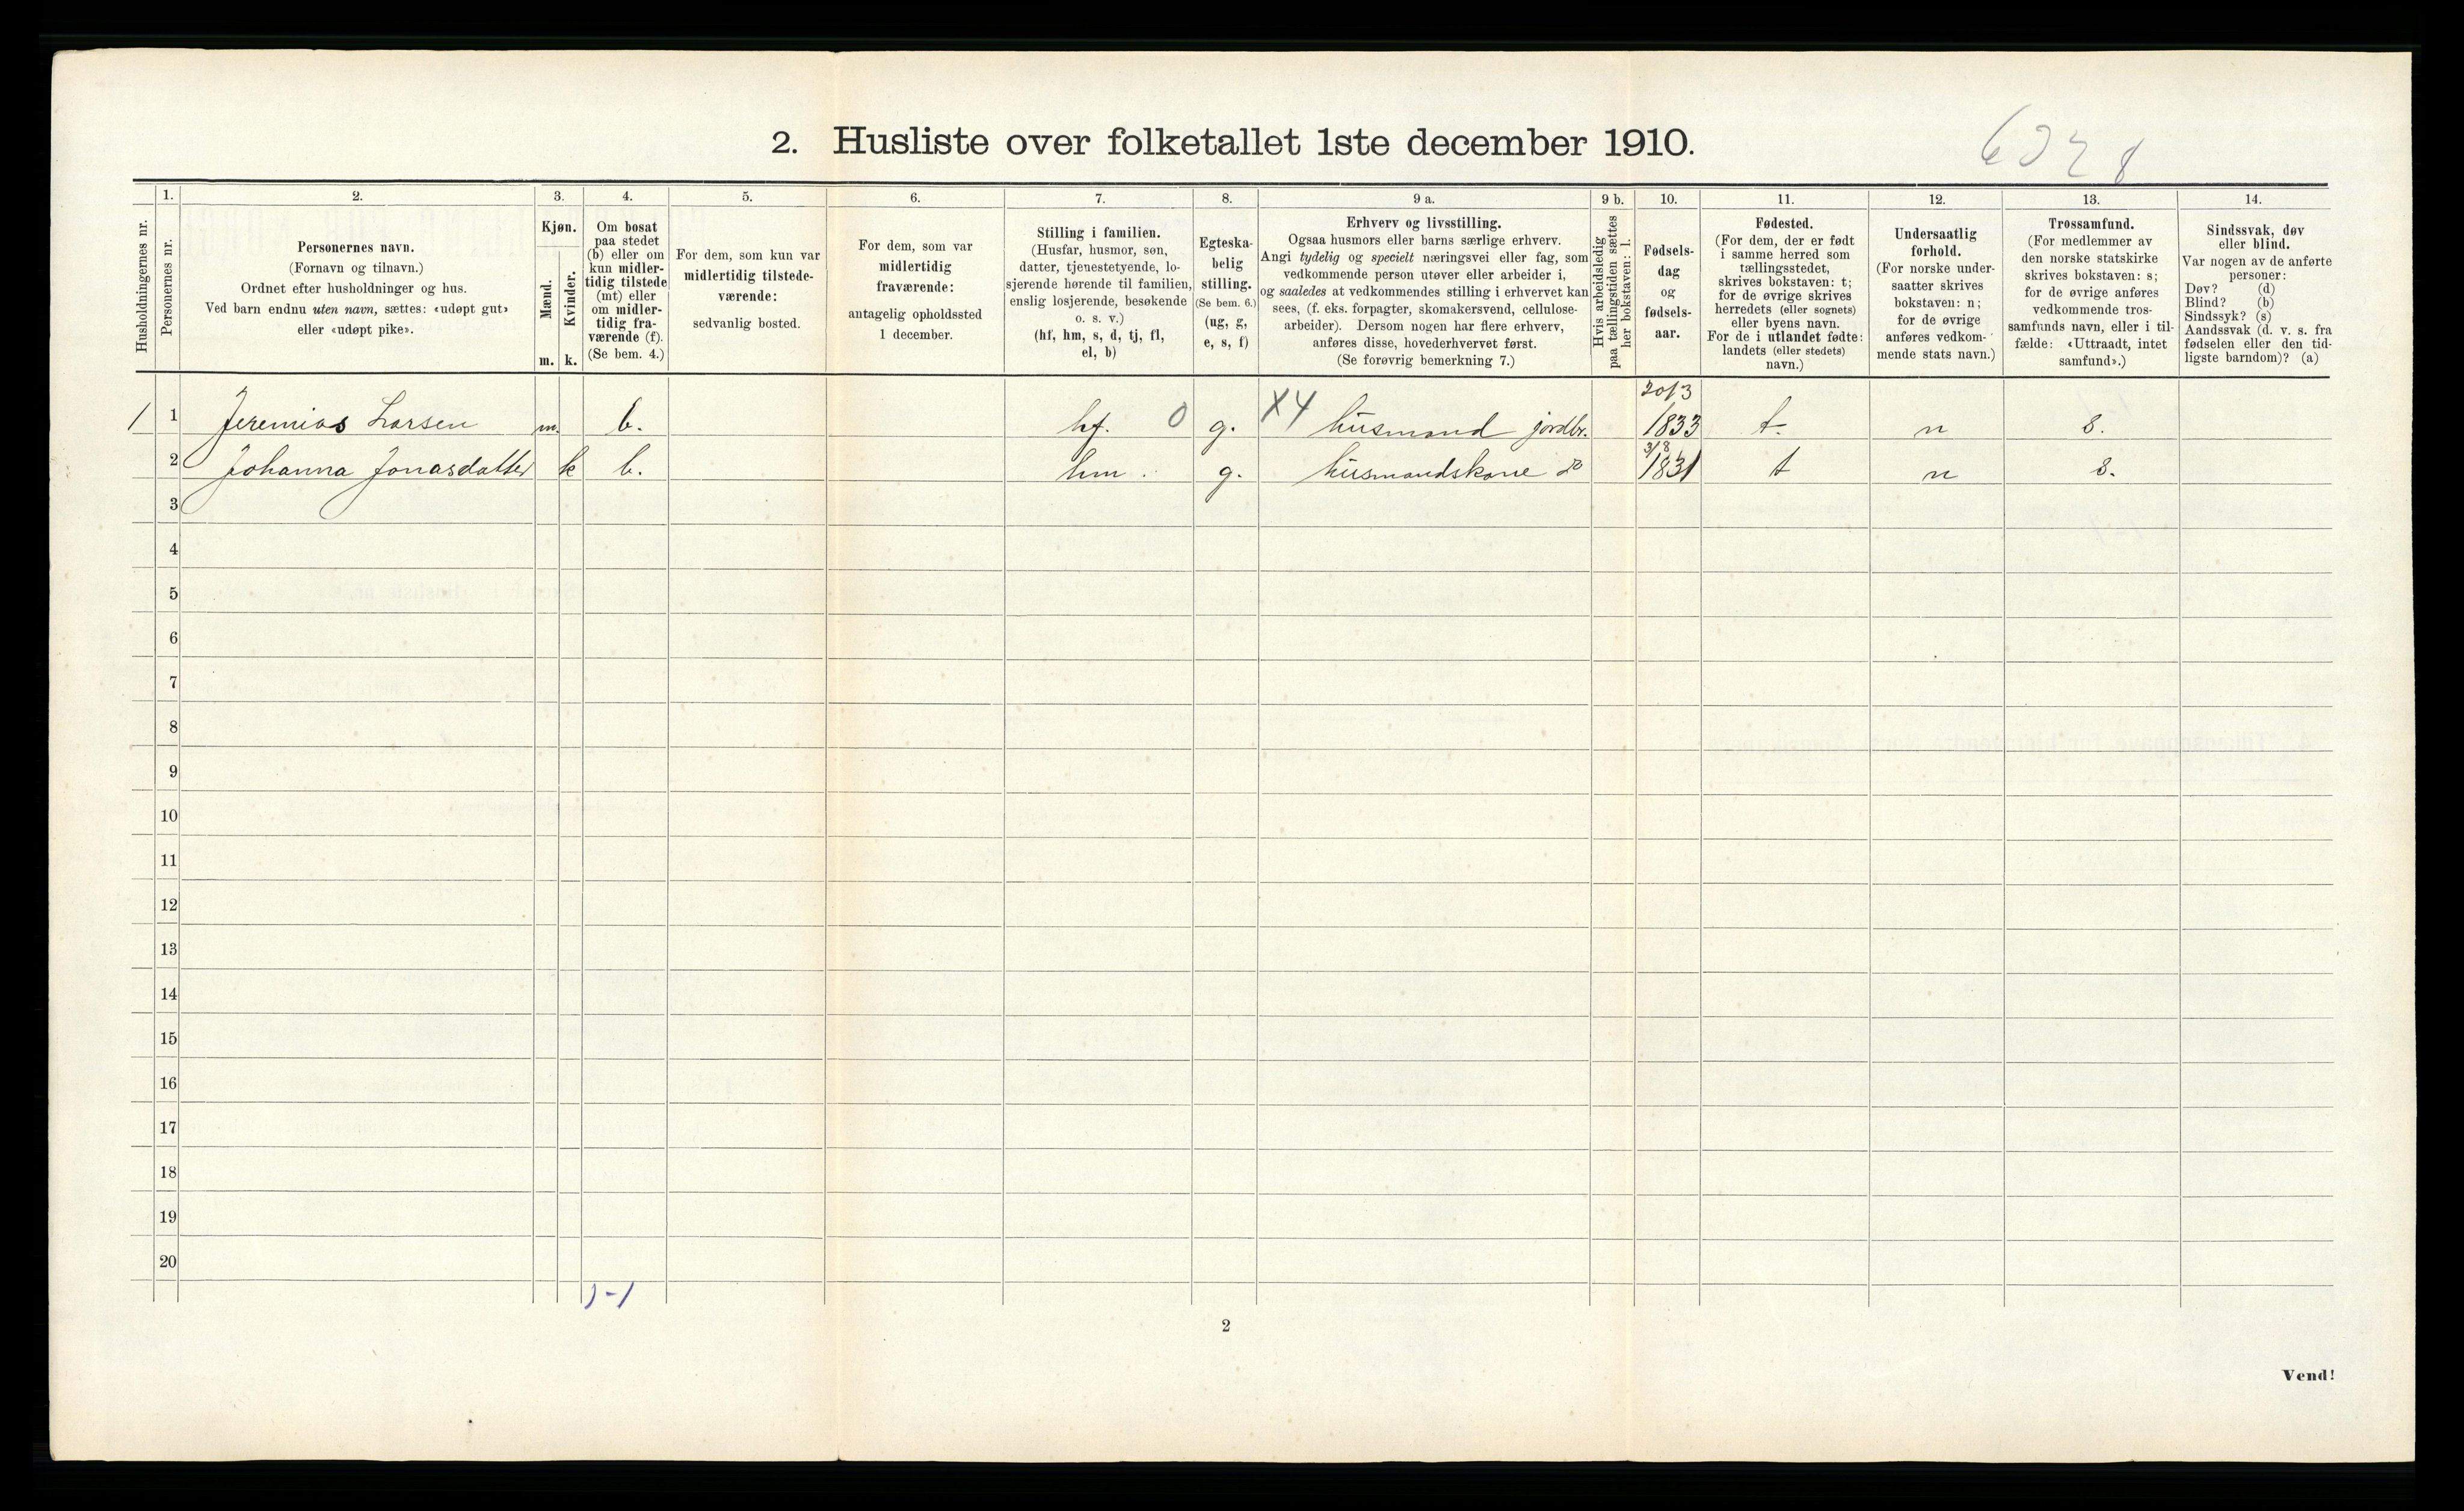 2. Husliste over folketallet 1ste december 1910.
Husholdningernes nr.
1.
Personernes nr.
2.
Personernes navn.
(Fornavn og tilnavn.)
Ordnet efter husholdninger og hus.
Ved barn endnu uten navn, sættes: «udøpt gut»
eller «udøpt pike».
3.
Kjøn.
Mænd.
Kvinder.
m. k.
4.
Om bosat
paa stedet
(b) eller om
kun midler-
tidig tilstede
(mt) eller
om midler-
tidig fra-
værende (f).
(Se bem. 4.)
5.
For dem, som kun var
midlertidig tilstede-
værende:
sedvanlig bosted.
6.
For dem, som var
midlertidig
fraværende:
antagelig opholdssted
1 december.
7.
Stilling i familien.
(Husfar, husmor, søn,
datter, tjenestetyende, lo-
sjerende hørende til familien,
enslig losjerende, besøkende
o. s. v.)
(hf, hm, s, d, tj, fl,
el, b)
8.
Egteska-
belig
stilling.
(Se bem. 6.)
(ug, g,
e, s, f)
9 a.
Erhverv og livsstilling.
Ogsaa husmors eller barns særlige erhverv.
Angi tydelig og specielt næringsvei eller fag, som
vedkommende person utøver eller arbeider i,
og saaledes at vedkommendes stilling i erhvervet kan
sees, (f. eks. forpagter, skomakersvend, cellulose-
arbeider). Dersom nogen har flere erhverv,
anføres disse, hovederhvervet først.
(Se forøvrig bemerkning 7.)
9 b.
Hvis arbeidsledig
paa tællingstiden sættes
her bokstaven: l.
10.
Fødsels-
dag
og
fødsels-
aar.
11.
Fødested.
(For dem, der er født
i samme herred som
tællingsstedet,
skrives bokstaven: t;
for de øvrige skrives
herredets (eller sognets)
eller byens navn.
For de i utlandet fødte:
landets (eller stedets)
navn.)
12.
Undersaatlig
forhold.
(For norske under-
saatter skrives
bokstaven: n;
for de øvrige
anføres vedkom-
mende stats navn.)
13.
Trossamfund.
(For medlemmer av
den norske statskirke
skrives bokstaven: s;
for de øvrige anføres
vedkommende tros-
samfunds navn, eller i til-
fælde: «Uttraadt, intet
samfund».)
14.
Sindssvak, døv
eller blind.
Var nogen av de anførte
personer:
Døv? (d)
Blind? (b)
Sindssyk? (s)
Aandssvak (d. v. s. fra
fødselen eller den tid-
ligste barndom)? (a)
1 1 Jeremias Larsen m. b. hf. 0 g. X4 husmand jordbr. 20/3 1833 t. n s.
2 Johanna Jonasdatter k b. hm. g. husmandskone do 3/8 1831 t n s.
3
4
5
6
7
8
9
10
11
12
13
14
15
16
17
18
19
20
1-1
2
Vend!